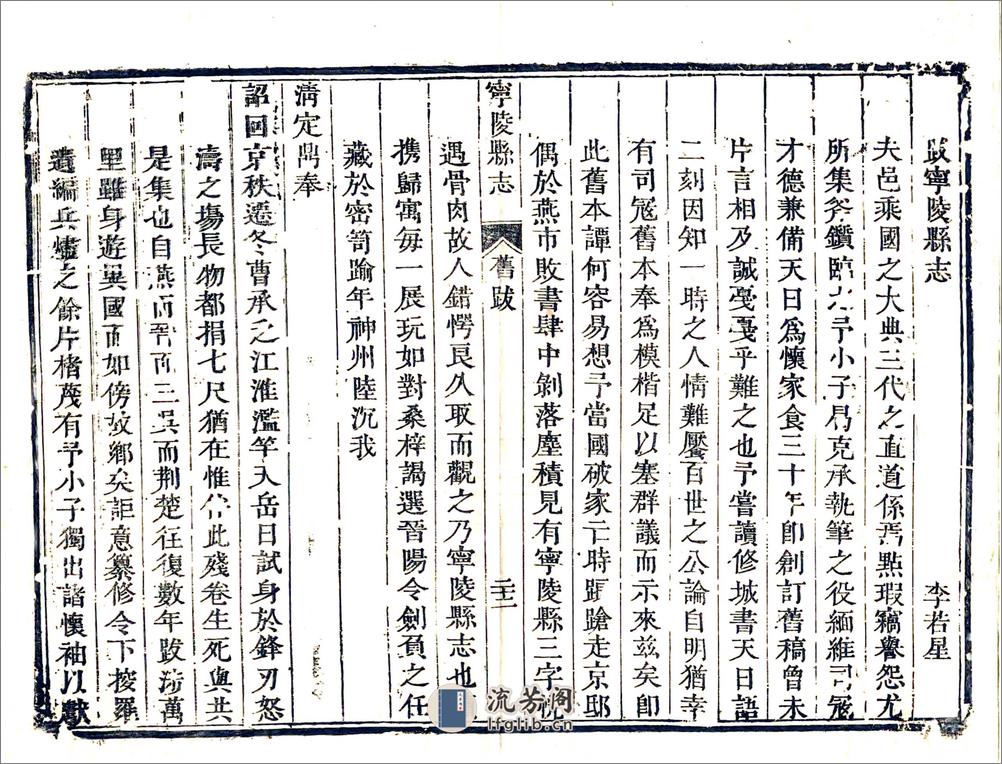 跋寧陵縣志
李若星
夫邑乘國之大典三代之直道係焉點瑕竊譽怨尤
所集斧鑕臨之予小子曷克承執筆之役緬維司冦
才德兼備天日爲懷家食三十年卽創訂舊稿曾未
片言相及誠戞戞乎難之也予嘗讀修城書天日語
二刻因知一時之人情難饜百世之公論自明猶幸
有司冦舊本奉爲模楷足以塞群議而示來兹矣卽
此舊本譚何容易想予當國破家亡時踉蹌走京邸
偶於燕市敗書肆中剝落塵積見有寧陵縣三字恍
寧陵縣志
舊跋
遇骨肉故人錯愕良久取而觀之乃寧陵縣志也
携歸寓每一展玩如對桑梓謁選晉陽令劍負之任
藏於密笥踰年神州陸沉我
淸定鼎奉
詔回京秩遷冬曹承乏江淮濫竽天岳日試身於鋒刃怒
濤之塲長物都捐七尺猶在惟此殘卷生死與共
是集也自燕而晉而三吳而荆楚往復數年跋涉萬
里雖身遊異國而如傍故鄉矣詎意纂修令下搜羅
遺編兵燼之餘片楮蔑有予小子獨出諸懷袖以獻
流芳阁
lfglib.cn